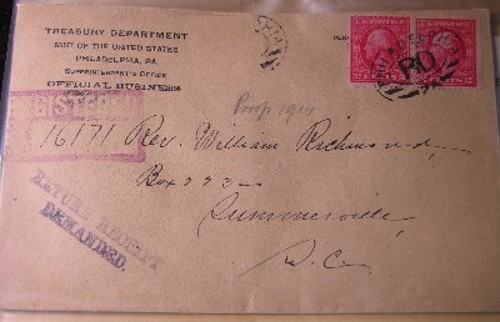 TREASURY DEPARTMENT
MINT OF THE UNITED STATES
PHILADELPHIA, PA.
SUPERINTENDENT'S OFFICE
OFFICIAL BUSINESS
U.S. POSTAGE
PHILADELPHIA
1914
16171 Rev. William Richmond,
Box 223
Summerville,
S.C.
RETURN RECEIPT
DEMANDED.